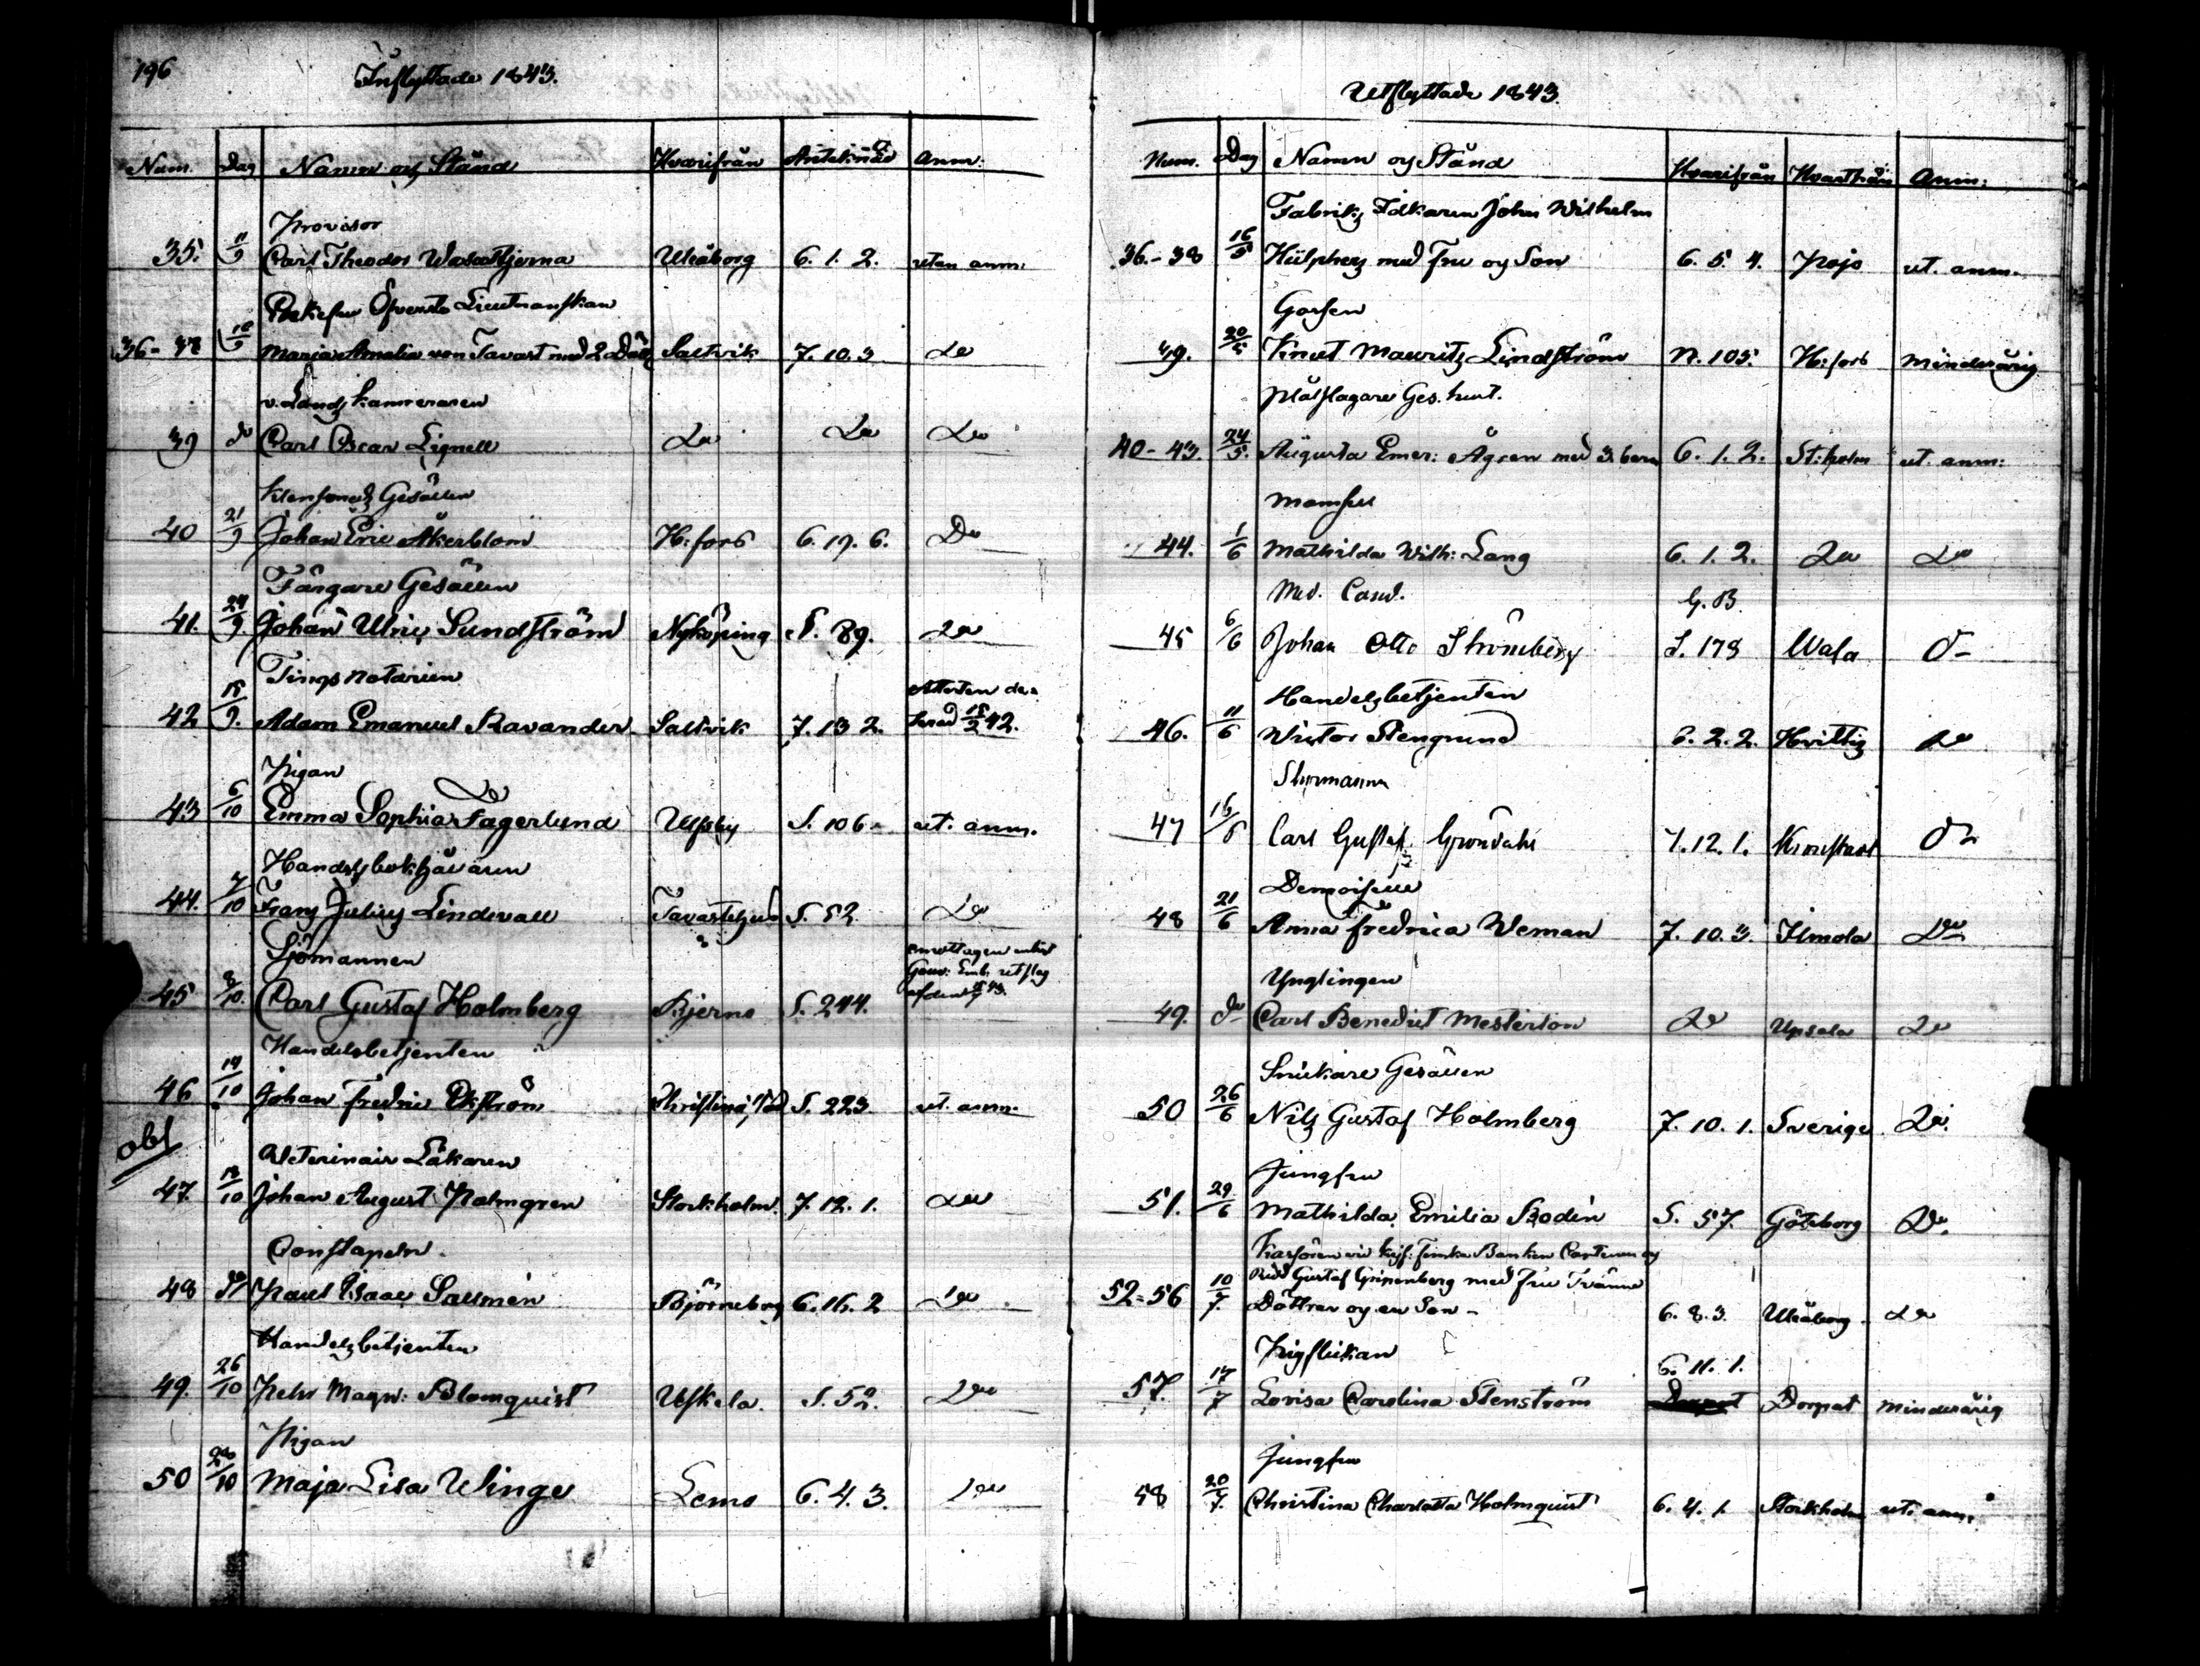 196
Inflyttade 1843.
Num. Dag Namn och Stånd Hvarifrån Anteknad Anm:
Provisor
35. 11/9 Carl Theodor Wasastjerna Uleåborg 6. 1. 2. utan anm:
Enkefru Öfverste Lieutnanskan
36-38 18/9 Maria Amalia von Tavast med 2 Saltvik 7. 10. 3 Do
v. Landskamreraren
39 do Carl Oscar Lignell Do Do Do
Klensmeds Gesällen
40 21/9 Johan Eric Åkerblom H:fors 6. 19. 6. Do
Färgare Gesällen
41. 29/9. Johan Ulric Sundström Nyköping S. 89. Do
Tings notarien
42 15/9. Adam Emanuel Ravander. Saltvik 7. 13 2. Attesten daterad 15/2 42.
Pigan
43 6/10 Emma Sophia Fagerlund Ulfsby S. 106. ut. anm.
Handelsbokhållaren
44. 7/10 Frans Julius Lindevall Tavastehus S. 52 Do
Sjömannen
45 8/10. Carl Gustaf Holmberg Bjerno S. 244. emottagen enligt
Gouv: Emb. utslag
af den
Handelsbetjenten
46 14/10 Johan Fredric Ekström Christinæstad S. 223. ut. anm.
obs
Veterinair Läkaren
47. 18/10 Johan August Palmgren Stockholm. 7. 12. 1. Do
Constapeln.
48 do Paul Isaac Sallmén Björneborg 6. 16. 2 Do
Handelsbetjenten
49. 26/10 Pehr Magn: Blomquist Uskela. S. 52. Do
Pigan
50 28/10 Maja Lisa Winge Lemo 6. 4. 3. Do
Utflyttade 1843.
Num. Dag Namn och Stånd Hvarifrån Hvarthän Anm:
Fabriks Idkaren John Wilhelm
36.-38 16/5 Hülphers med Fru och Son 6. 5. 4. Pojo ut. anm.
Gossen
39. 20/5 Knut Mauritz Lindström N. 105. H:fors Minderårig
Plåtslagare Ges. hust.
40-43. 24/5. Augusta Emer: Ågren med 3 barn 6. 1. 2. St:holm ut. anm:
Mamsell
44. 1/6 Mathilda Wilh: Lang 6. 1. 2. Do Do
Med. Cand. G. B.
45 6/6 Johan Otto Strömberg S. 178 Wasa do
Handelsbetjenten
46. 11/6 Victor Stengrund 6. 2. 2. Hvittis Do
Styrmannen
47 15/6 Carl Gustaf Gröndahl 7. 12. 1. Kronstadt do
Demoiselle
48 21/6 Anna Fredrica Veman 7. 10. 3. Ilmola Do
Ynglingen
49. do Carl Benedict Mesterton Do Upsala Do
Snickare Gesällen
50 26/6 Nils Gustaf Holmberg 7. 10. 1. Sverige Do
Jungfru
51. 29/6 Mathilda Emilia Bodin S. 57. Göteborg Do.
Kassören vid Kejs: Finska Banken och
Ridd Gustaf Gripenberg med Fru Tvänne
52-56 10/7. Döttrar och en Son - 6. 8. 3. Uleåborg. Do
Pigflickan 6. 11. 1.
57. 17/7 Lovisa Carolina Stenström Dorpat Dorpat Minderårig
Jungfru
58 20/7. Christina Charlotta Holmquist 6. 4. 1. Stockholm ut. anm: